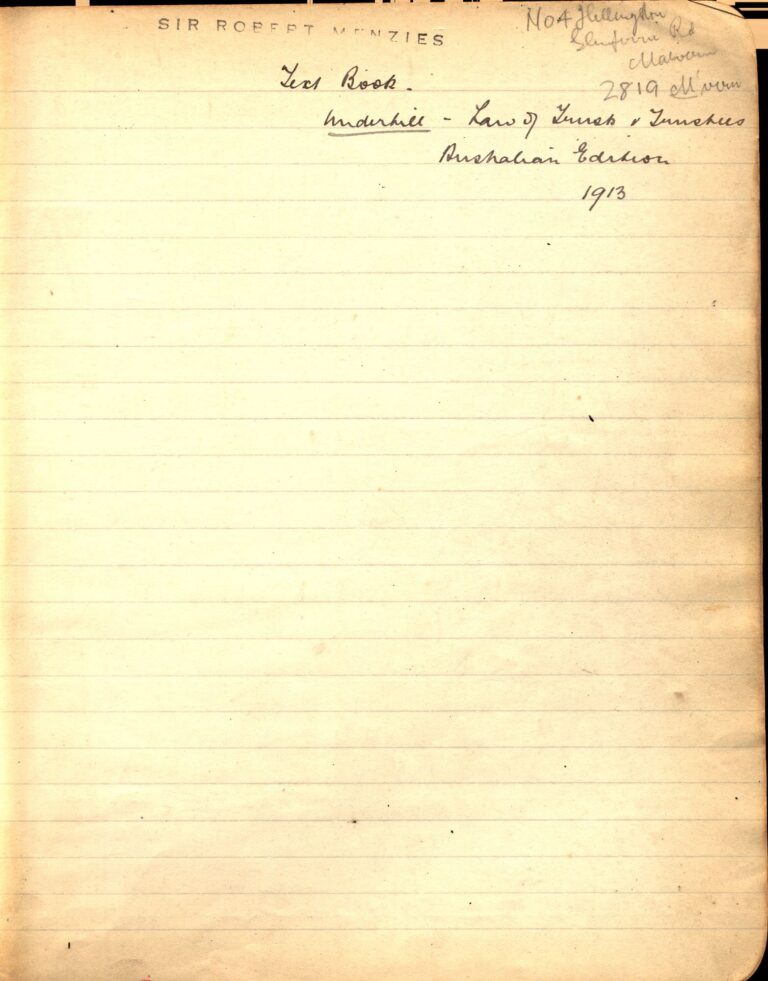 SIR ROBERT MENZIES
No 4
Rd
Malvern
2819 M'vern
Text Book.
Underhill - Law of Trusts & Trustees
Australian Edition
1913